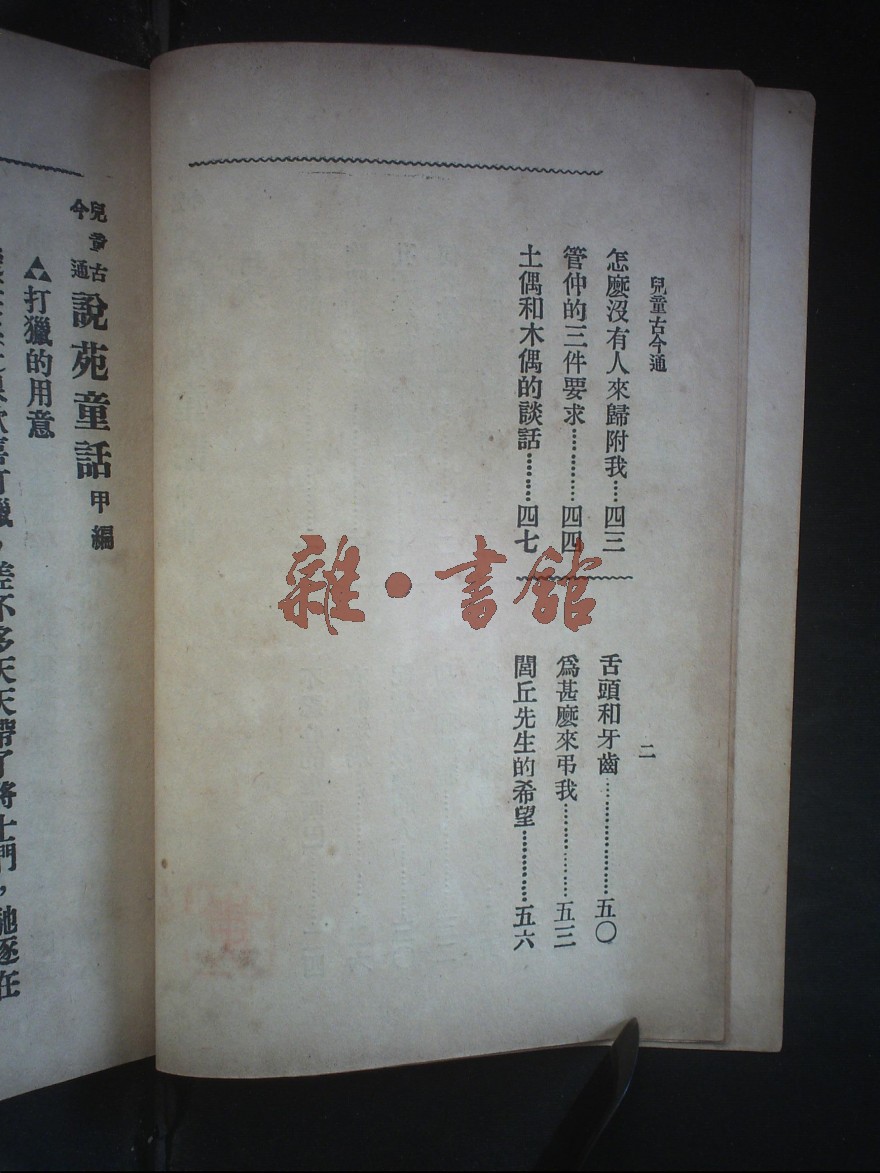 兒童古今通
二
怎麼沒有人來歸附我……四三
管仲的三件要求…………四四
土偶和木偶的談話………四七
舌頭和牙齒…………………五〇
爲甚麼來弔我………………五三
閭丘先生的希望……………五六
雜·書館
兒童古今通 說苑童話 甲編
打獵的用意
歡喜打獵，差不多天天帶了將士們，馳逐在